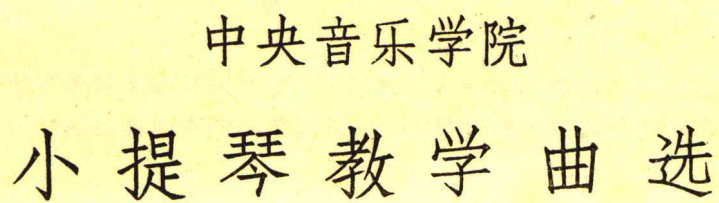 中央音乐学院
小提琴教学曲选